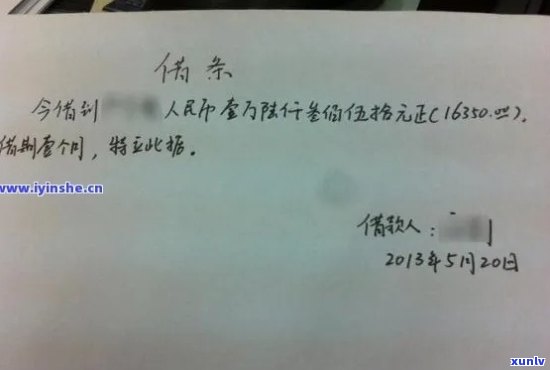 借条
今借到 人民币壹万陆仟叁佰伍拾元正(16350.00).
借期壹个月，特立此据。
www.iyinshe.cn
借款人：
2013年5月20日
xunlv